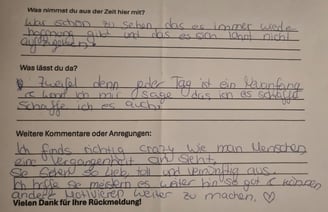 Was nimmst du aus der Zeit hier mit?
War schön zu sehen, das es immer wieder
hoffnung gibt und das es sich lohnt nicht
aufzugeben.
Was lässt du da?
Zweifel denn jeder Tag ist ein Neuanfang
wenn ich mir sage das ich es schaffe
schaffe ich es auch!
Weitere Kommentare oder Anregungen:
Ich finds richtig crazy wie man Menschen
eine Vergangenheit an sieht,
Sie sehen so lieb, toll und vernünftig aus.
Ich hoffe sie meistern es weiter hin so gut & können
andere Motivieren weiter zu machen, ♡
Vielen Dank für Ihre Rückmeldung!